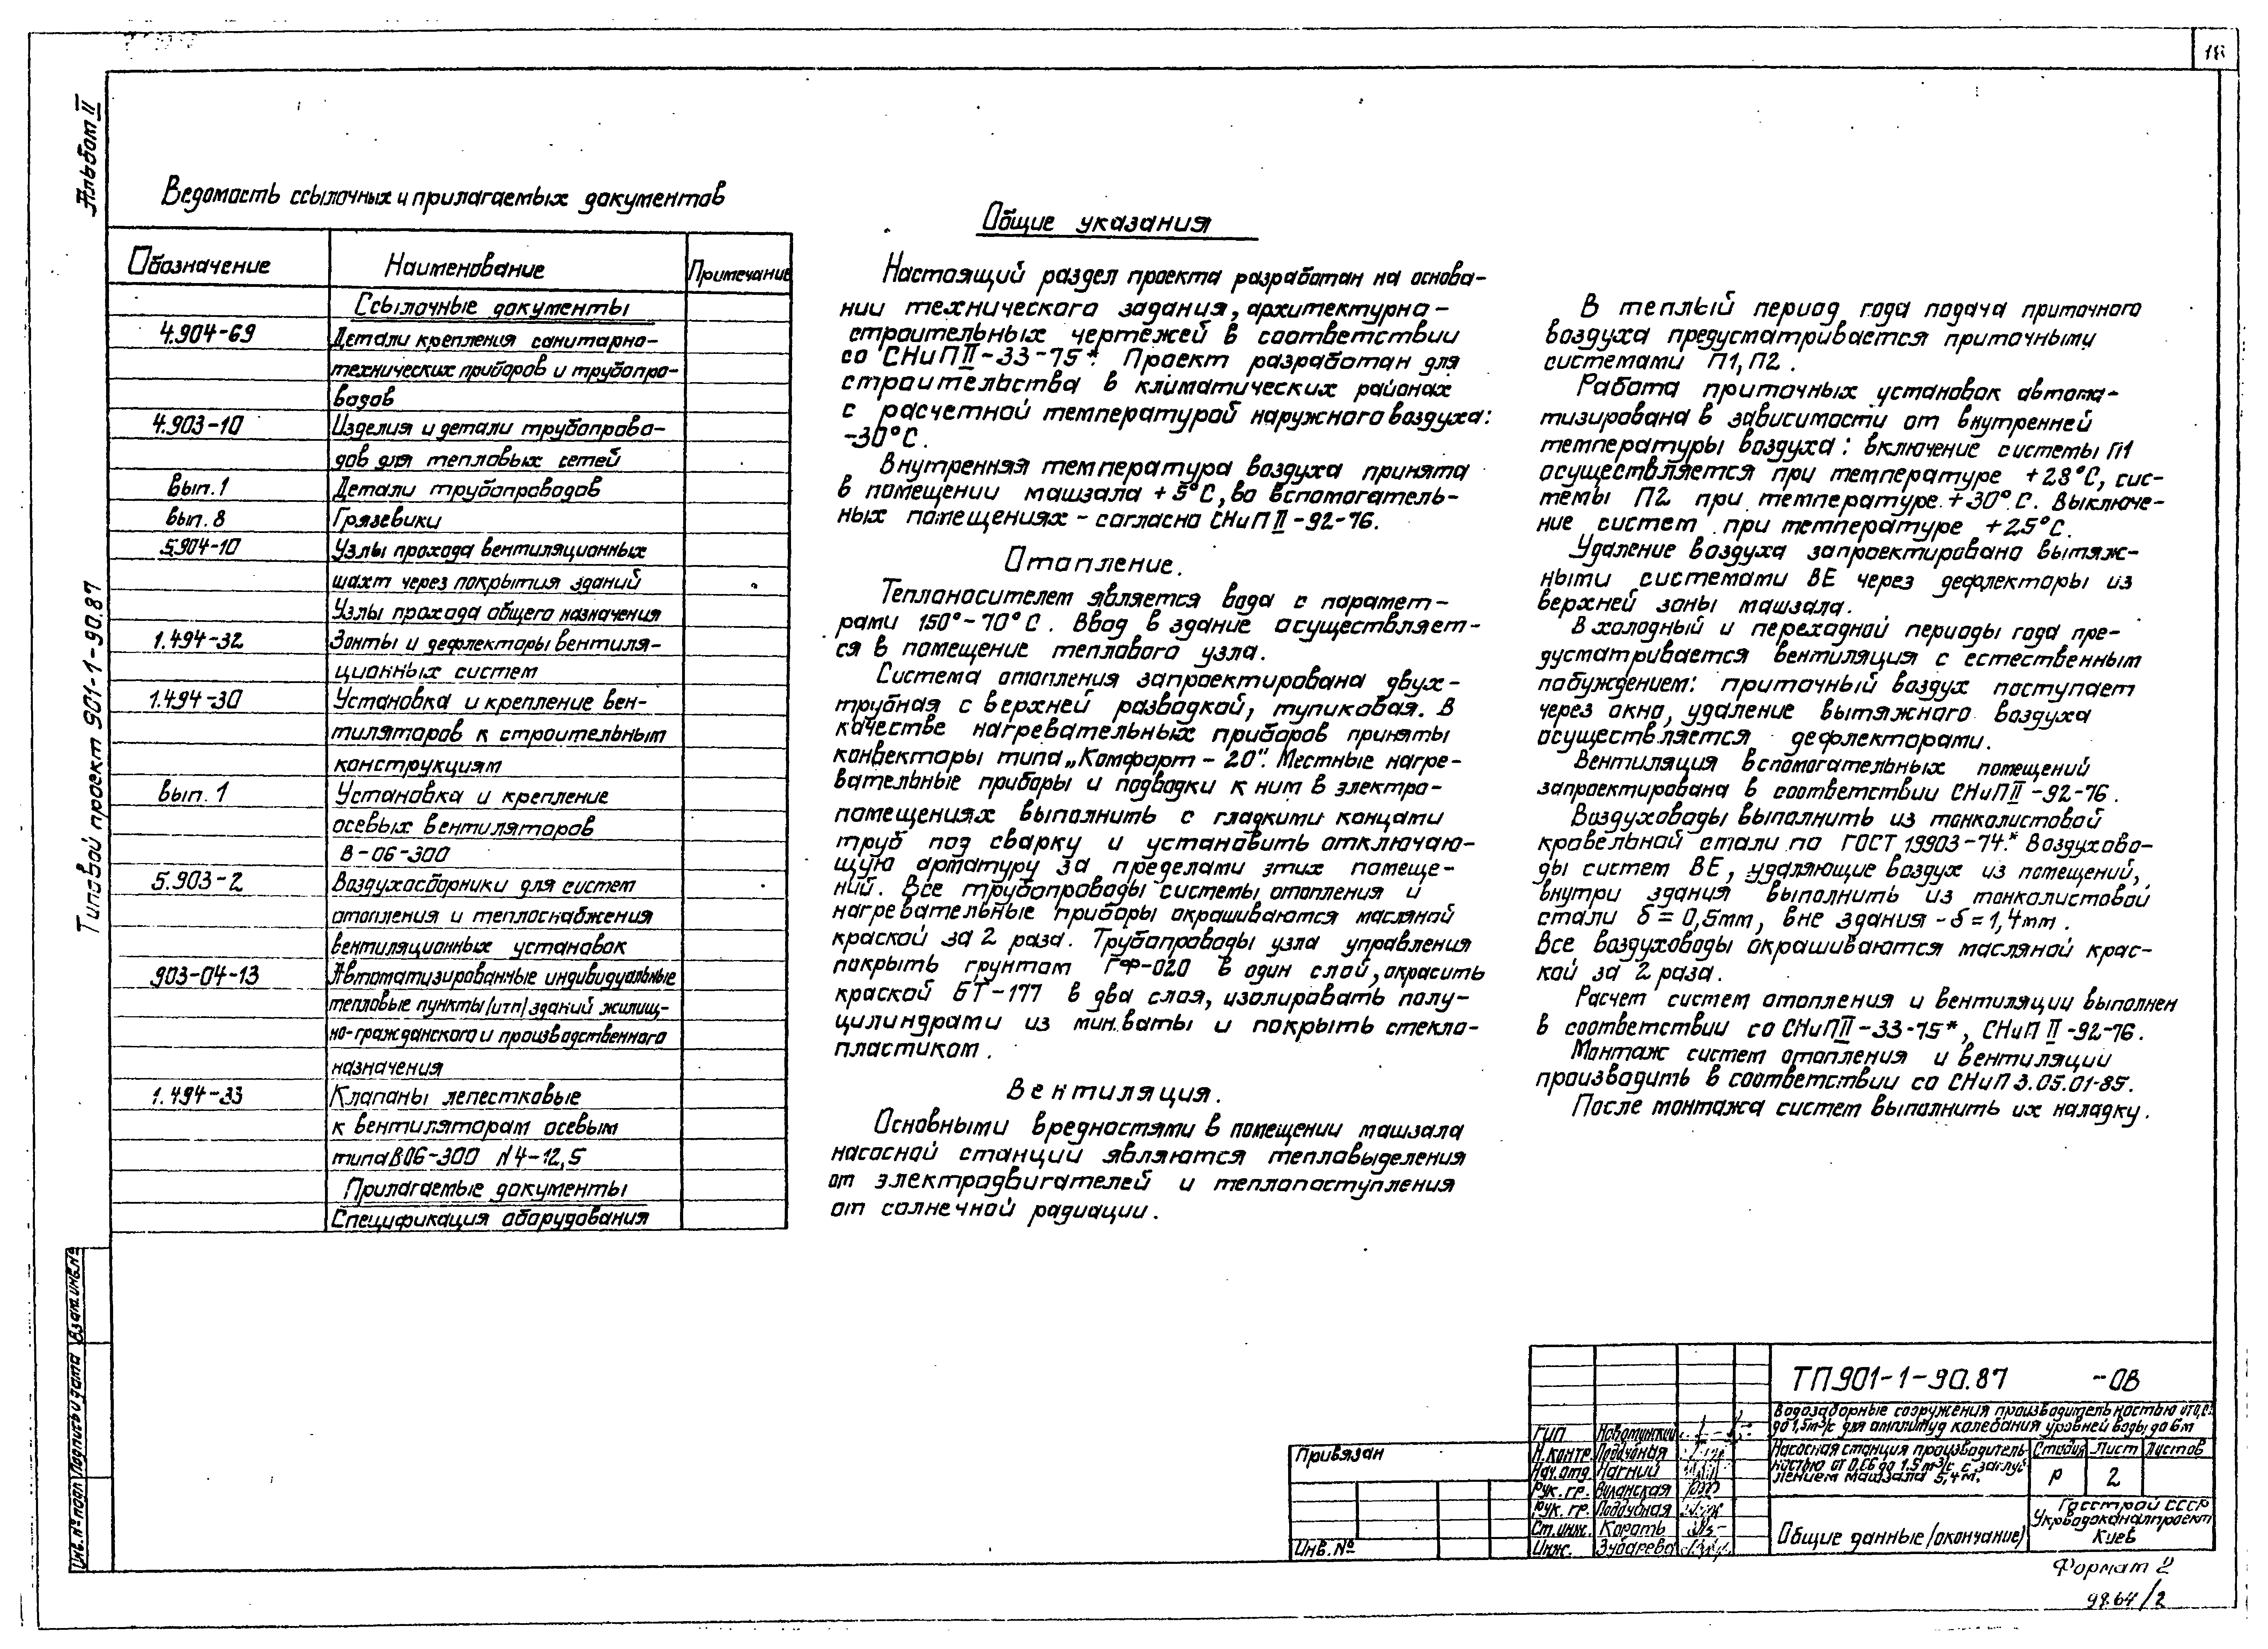 18
Альбом II
Типовой проект 901-1-90.87
Ведомость ссылочных и прилагаемых документов
Обозначение Наименование Примечание
Ссылочные документы
4.904-69 Детали крепления санитарно-
технических приборов и трубопро-
водов
4.903-10 Изделия и детали трубопрово-
дов для тепловых сетей
вып.1 Детали трубопроводов
вып.8 Грязевики
5.904-10 Узлы прохода вентиляционных
шахт через покрытия зданий
Узлы прохода общего назначения
1.494-32 Зонты и дефлекторы вентиля-
ционных систем
1.494-30 Установка и крепление вен-
тиляторов к строительным
конструкциям
вып.1 Установка и крепление
осевых вентиляторов
В-06-300
5.903-2 Воздухосборники для систем
отопления и теплоснабжения
вентиляционных установок
903-04-13 Автоматизированные индивидуальные
тепловые пункты /итп/ зданий жилищ-
но-гражданского и производственного
назначения
1.494-33 Клапаны лепестковые
к вентиляторам осевым
типа В06-300 N4-12,5
Прилагаемые документы
Спецификация оборудования
Общие указания
Настоящий раздел проекта разработан на основа-
нии технического задания, архитектурно-
строительных чертежей в соответствии
со СНиП II-33-75*. Проект разработан для
строительства в климатических районах
с расчетной температурой наружного воздуха:
-30°С.
Внутренняя температура воздуха принята
в помещении машзала +5°С, во вспомогатель-
ных помещениях - согласно СНиП II-92-76.
Отопление.
Теплоносителем является вода с парамет-
рами 150°-70°С. Ввод в здание осуществляет-
ся в помещение теплового узла.
Система отопления запроектирована двух-
трубная с верхней разводкой, тупиковая. В
качестве нагревательных приборов приняты
конвекторы типа „Комфорт-20". Местные нагре-
вательные приборы и подводки к ним в электро-
помещениях выполнить с гладкими концами
труб под сварку и установить отключаю-
щую арматуру за пределами этих помеще-
ний. Все трубопроводы системы отопления и
нагревательные приборы окрашиваются масляной
краской за 2 раза. Трубопроводы узла управления
покрыть грунтом ГФ-020 в один слой, окрасить
краской БТ-177 в два слоя, изолировать полу-
цилиндрами из мин.ваты и покрыть стекло-
пластиком.
Вентиляция.
Основными вредностями в помещении машзала
насосной станции являются тепловыделения
от электродвигателей и теплопоступления
от солнечной радиации.
В теплый период года подача приточного
воздуха предусматривается приточными
системами П1, П2.
Работа приточных установок автома-
тизирована в зависимости от внутренней
температуры воздуха: включение системы П1
осуществляется при температуре +28°С, сис-
темы П2 при температуре +30°С. Выключе-
ние систем при температуре +25°С.
Удаление воздуха запроектировано вытяж-
ными системами ВЕ через дефлекторы из
верхней зоны машзала.
В холодный и переходной периоды года пре-
дусматривается вентиляция с естественным
побуждением: приточный воздух поступает
через окна, удаление вытяжного воздуха
осуществляется дефлекторами.
Вентиляция вспомогательных помещений
запроектирована в соответствии СНиП II-92-76.
Воздуховоды выполнить из тонколистовой
кровельной стали по ГОСТ 19903-74*. Воздухово-
ды систем ВЕ, удаляющие воздух из помещений,
внутри здания выполнить из тонколистовой
стали δ=0,5мм, вне здания - δ=1,4мм.
Все воздуховоды окрашиваются масляной крас-
кой за 2 раза.
Расчет систем отопления и вентиляции выполнен
в соответствии со СНиП II-33-75*, СНиП II-92-76.
Монтаж систем отопления и вентиляции
производить в соответствии со СНиП 3.05.01-85.
После монтажа систем выполнить их наладку.
Взам.инв.№
Подпись и дата
Инв.№ подл
Привязан
Инв.№
ГИП
Н.контр. Поддубная
Нач.отд. Нагний
Рук.гр. Виланская
Рук.гр. Поддубная
Ст.инж. Короть
Инж. Зубарева
ТП 901-1-90.87 -ОВ
Водозаборные сооружения производительностью от
до 1,5м³/с для амплитуд колебания уровней воды до 6м
Насосная станция производитель-
ностью от 0,66 до 1,5 м³/с с заглуб-
лением машзала 5,4м.
Стадия Лист Листов
Р 2
Общие данные /окончание/
Госстрой СССР
Укрводоканалпроект
Киев
Формат 2
9864/2